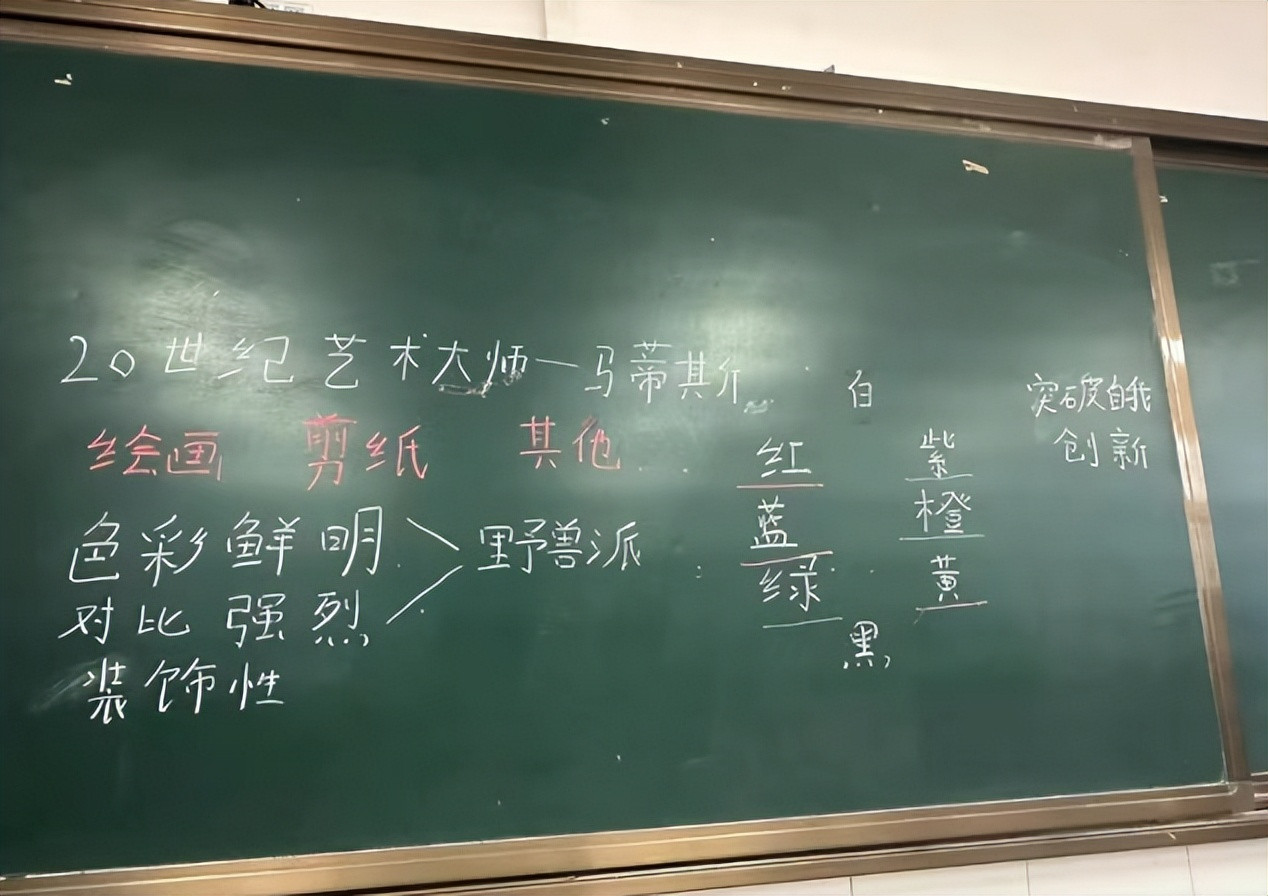 20世纪艺术大师—马蒂斯
绘画 剪纸 其他
色彩鲜明
对比强烈
装饰性
野兽派
白
红 紫
蓝 橙
绿 黄
黑
突破自我
创新